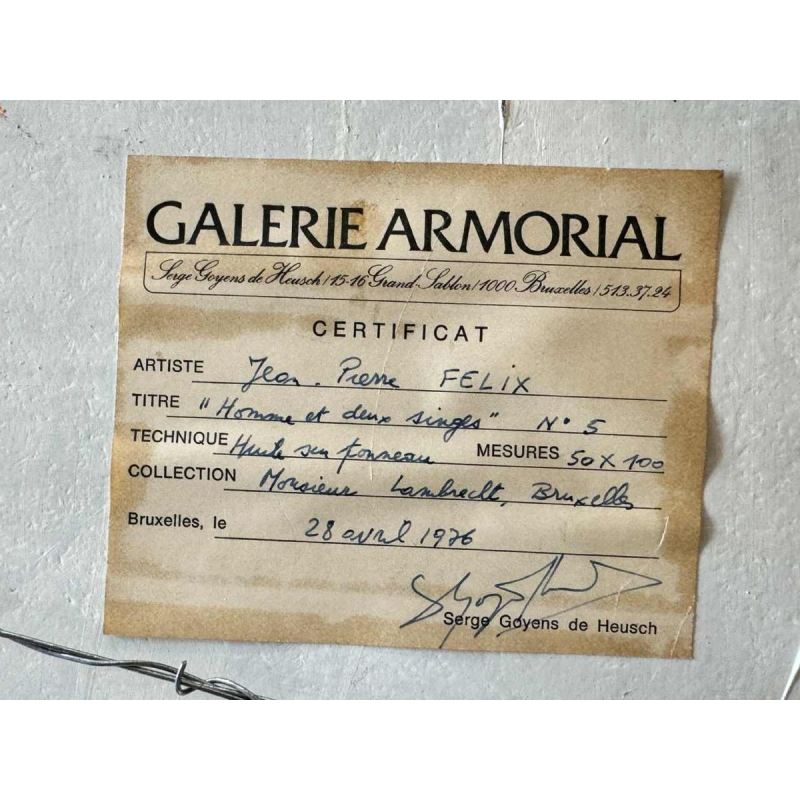 GALERIE ARMORIAL
Serge Goyens de Heusch / 15-16 Grand-Sablon / 1000 Bruxelles / 513.37.24
CERTIFICAT
ARTISTE Jean-Pierre FELIX
TITRE "Homme et deux singes" N° 5
TECHNIQUE Huile sur panneau MESURES 50 X 100
COLLECTION Monsieur Lambrecht, Bruxelles
Bruxelles, le 28 avril 1976
Serge Goyens de Heusch